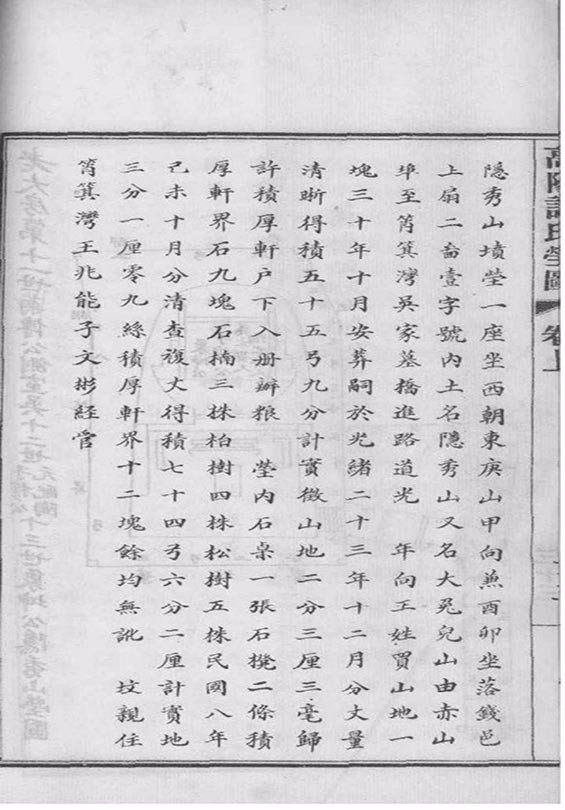 高陽許氏塋圖 卷上
隱秀山墳塋一座坐西朝東庚山甲向兼酉卯坐落錢邑
上扇二畬壹字號內土名隱秀山又名大兔兒山由赤山
埠至筲箕灣吳家墓橋進路道光 年向王姓買山地一
塊三十年十月安葬嗣於光緒二十三年十二月分丈量
清晰得積五十五弓九分計實徵山地二分三厘三毫歸
許積厚軒户下入册辦粮 塋內石桌一張石櫈二條積
厚軒界石九塊石楠三株柏樹四株松樹五株民國八年
己未十月分清查複丈得積七十四弓六分二厘計實地
三分一厘零九絲積厚軒界十二塊餘均無訛 坟親住
筲箕灣王兆能子文彬經管